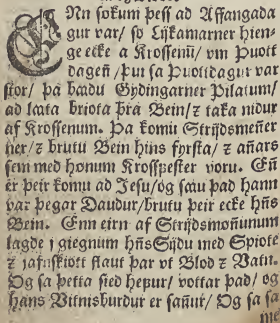 ENn sokum þess ad Affangada
gur var/ so Lijkamarner hien-
ge ecke a Krossenū/ vm Þuott
dageñ /Þui sa Þuottdagur var
stor/ þa bædu Gydingarner Pilatum/
ad lata briota þra Bein/ ⁊ taka nidur
af Krossenum. Þa komu Strijdsmeñer
ner/ ⁊ brutu Bein hins fyrsta/ ⁊ añars
sem med hønum Krossfester voru. Eñ
er þeir komu ad Jesu/ og sau þad hann
var þegar Daudur/ brutu þeir ecke hñs
Bein. Enn eirn af Strijdsmoñunum
lagde j giegnum hñs Sijdu med Spiote
⁊ jafnskiott flaut þar vt Blod ⁊ Vatn.
Og sa þetta sied hefur/ vottar þad/ og
hans Vitnisburdur er sañur/ Og sa sa
me